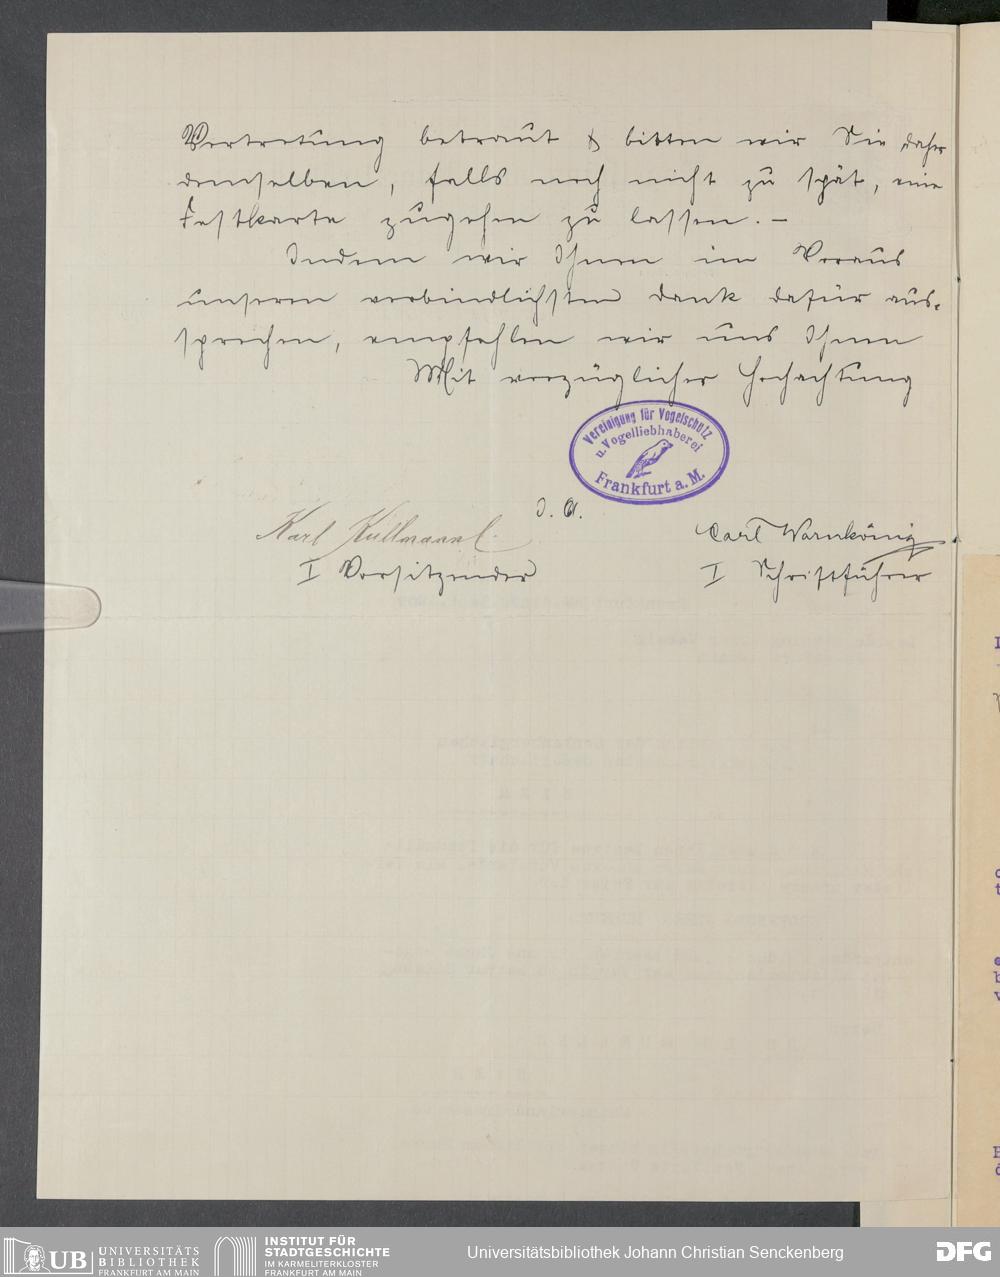 Vertretung betraut & bitten wir Sie daher
demselben, falls noch nicht zu spät, eine
Festkarte zugehen zu lassen. –
Indem wir Ihnen im Voraus
unseren verbindlichsten Dank dafür aus-
sprechen, empfehlen wir uns Ihnen
Mit vorzüglicher Hochachtung
Vereinigung für Vogelschutz
u. Vogelliebhaberei
Frankfurt a. M.
I. A.
Karl Kullmann
Carl Warnkönig
I Vorsitzender
I Schriftführer
UB UNIVERSITÄTS
BIBLIOTHEK
FRANKFURT AM MAIN
INSTITUT FÜR
STADTGESCHICHTE
IM KARMELITERKLOSTER
FRANKFURT AM MAIN
Universitätsbibliothek Johann Christian Senckenberg
DFG